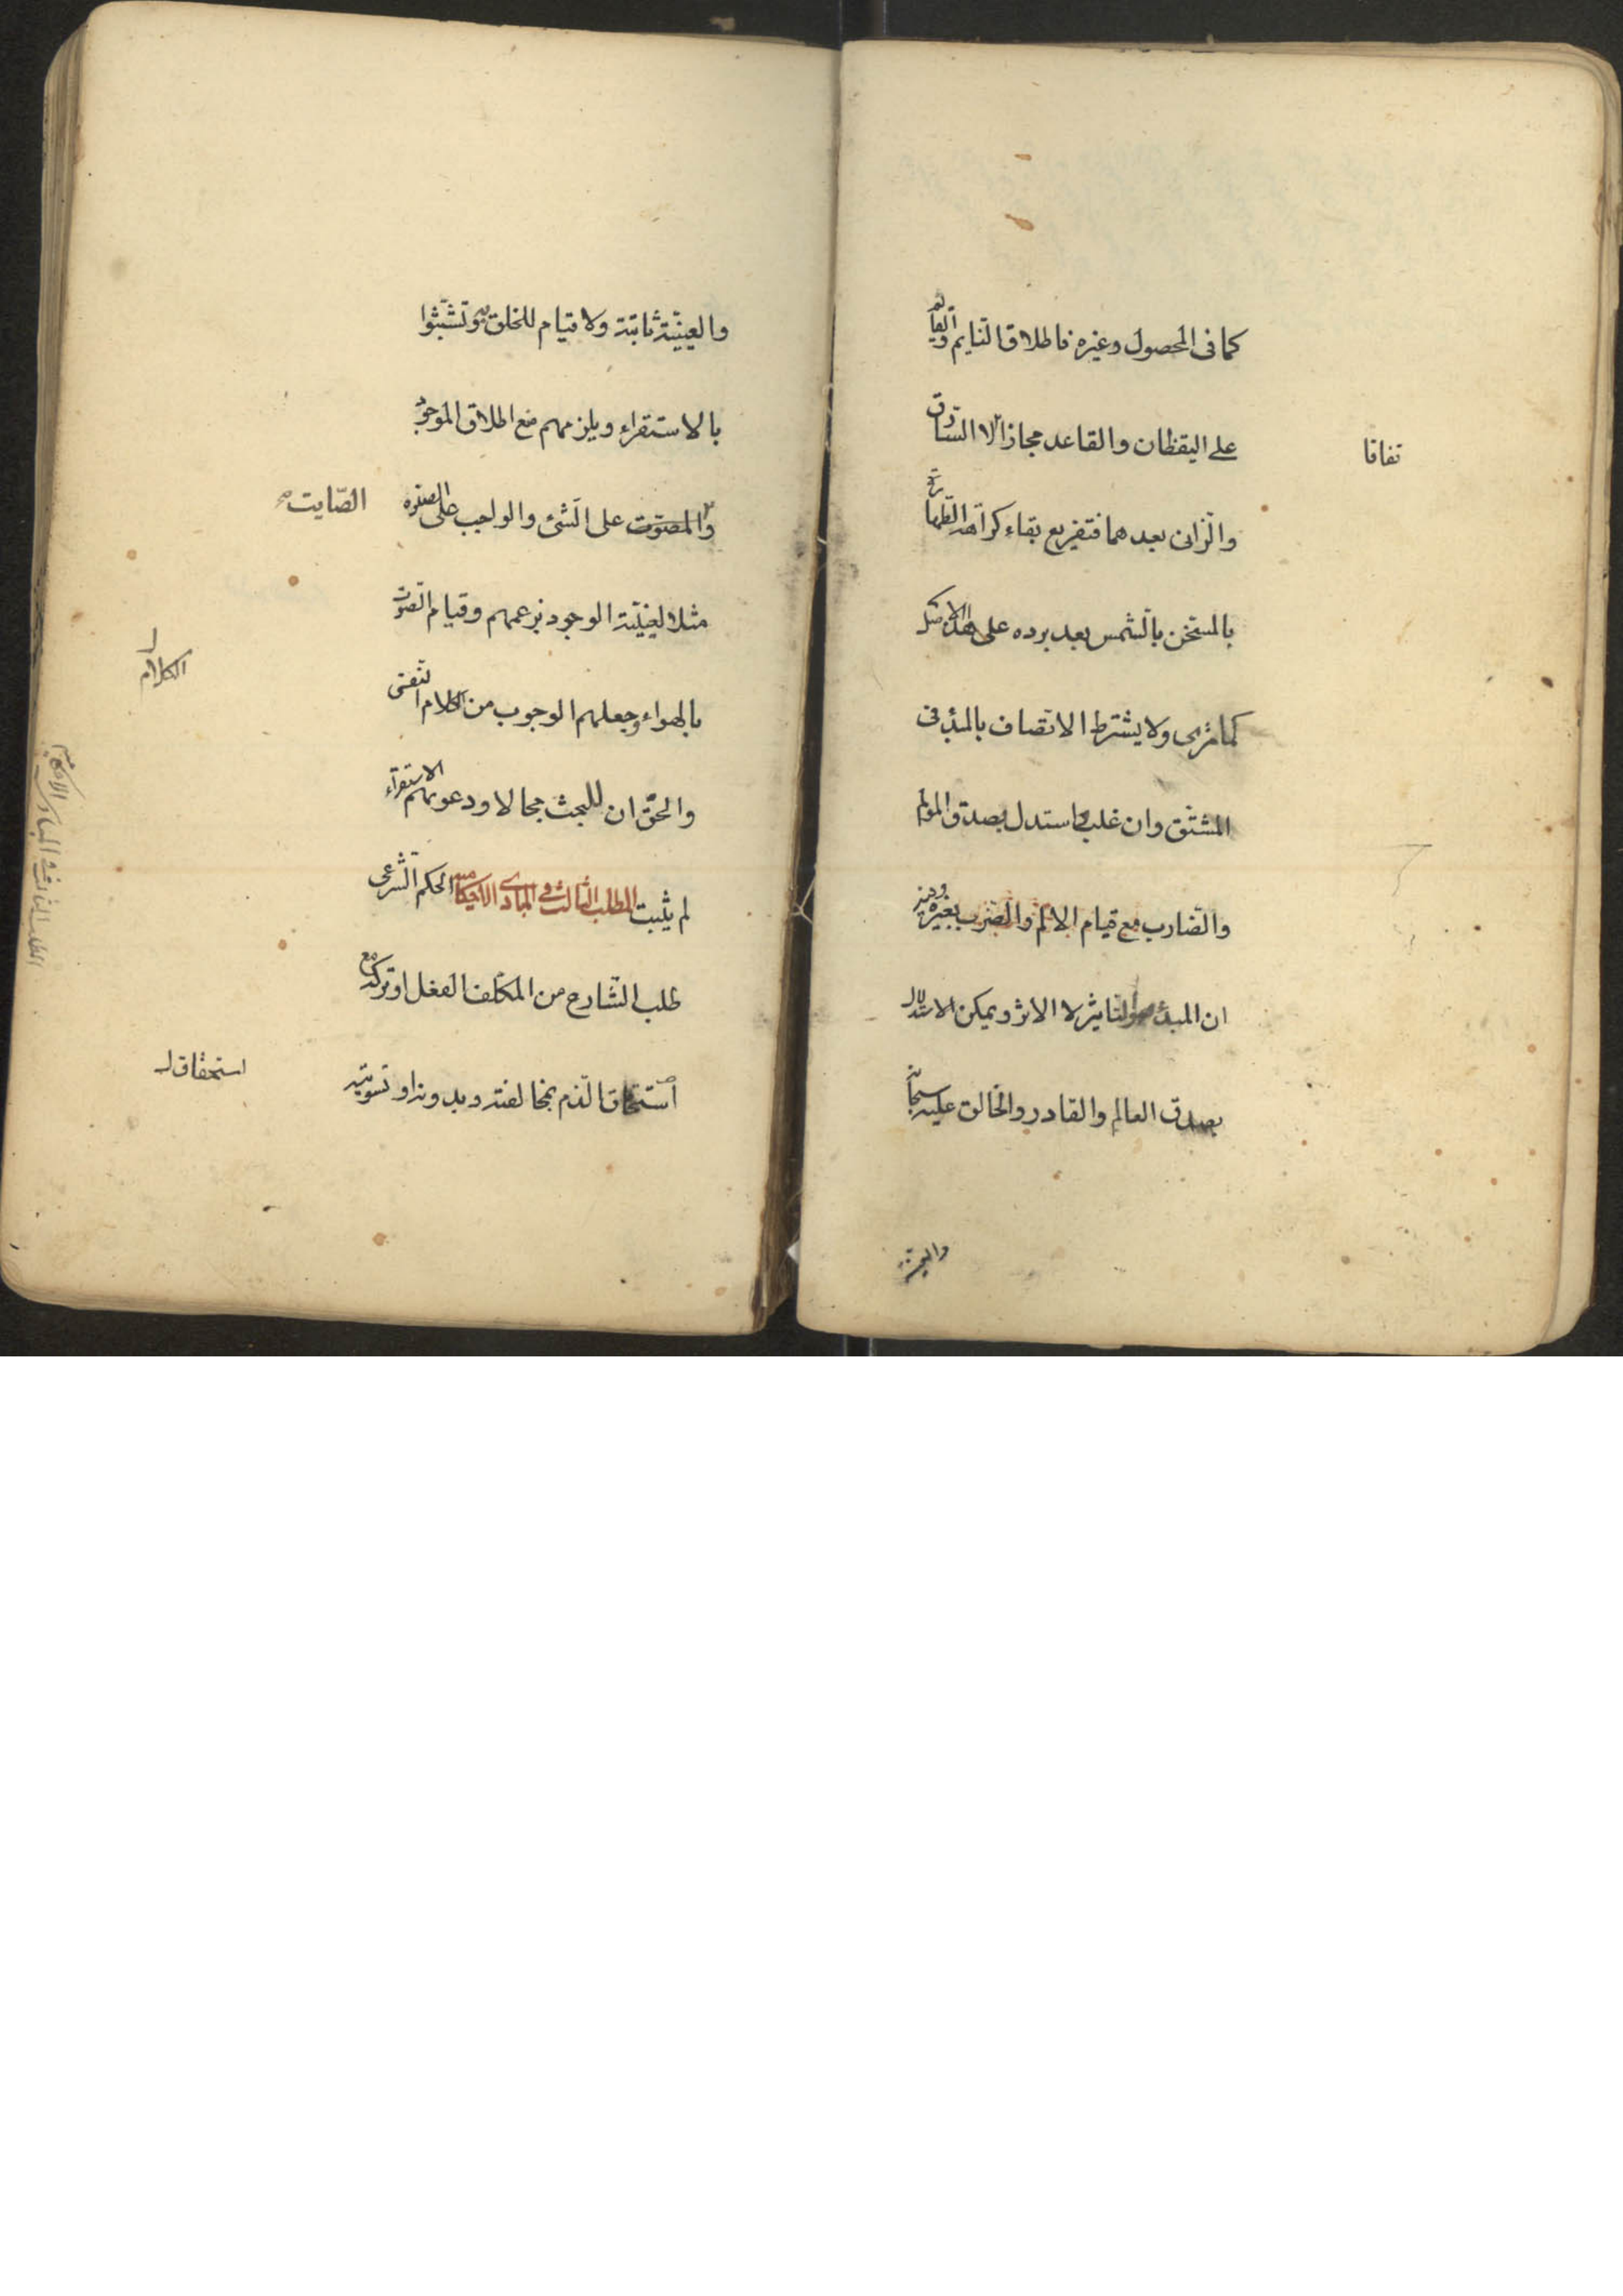 كما فى المحصول وغيره فاطلاق النايم والقائم
على اليقظان والقاعد مجاز الا السارق
تفاقا
والزانى بعدهما فتفريع بقاء كراهة الطهارة
بالمسخن بالشمس بعد برده على هذا الاصل
كما ترى ولا يشترط الاتصاف بالمبدء فى
المشتق وان غلب استدل بصدق المولم
والضارب مع قيام الالم والضرب بغيره وفيه
ان المبدء هو التاثير لا الاثر ويمكن الاستدلال
بصدق العالم والقادر والخالق عليه سبحانه
والعينية
والعينية ثابتة ولا قيام للخلق به وتشبثوا
بالاستقراء ويلزمهم منع اطلاق الموجود
والمصوت على الشئ والواجب على الصلوة
الصّايت
مثلا لعينية الوجود بزعمهم وقيام الصوت
بالهواء وجعلهم الوجوب من الكلام النفسى
الكلام
والحق ان للبحث مجالا ودعويهم الاستقراء
لم يثبت المطلب الثالث فى المبادى الاحكامية الحكم الشرعى
طلب الشارع من المكلف الفعل او تركه مع
استحقاق الذم بمخالفته وبدونه او تسويته
استحقاق
المطلب الثالث فى المبادى الاحكامية